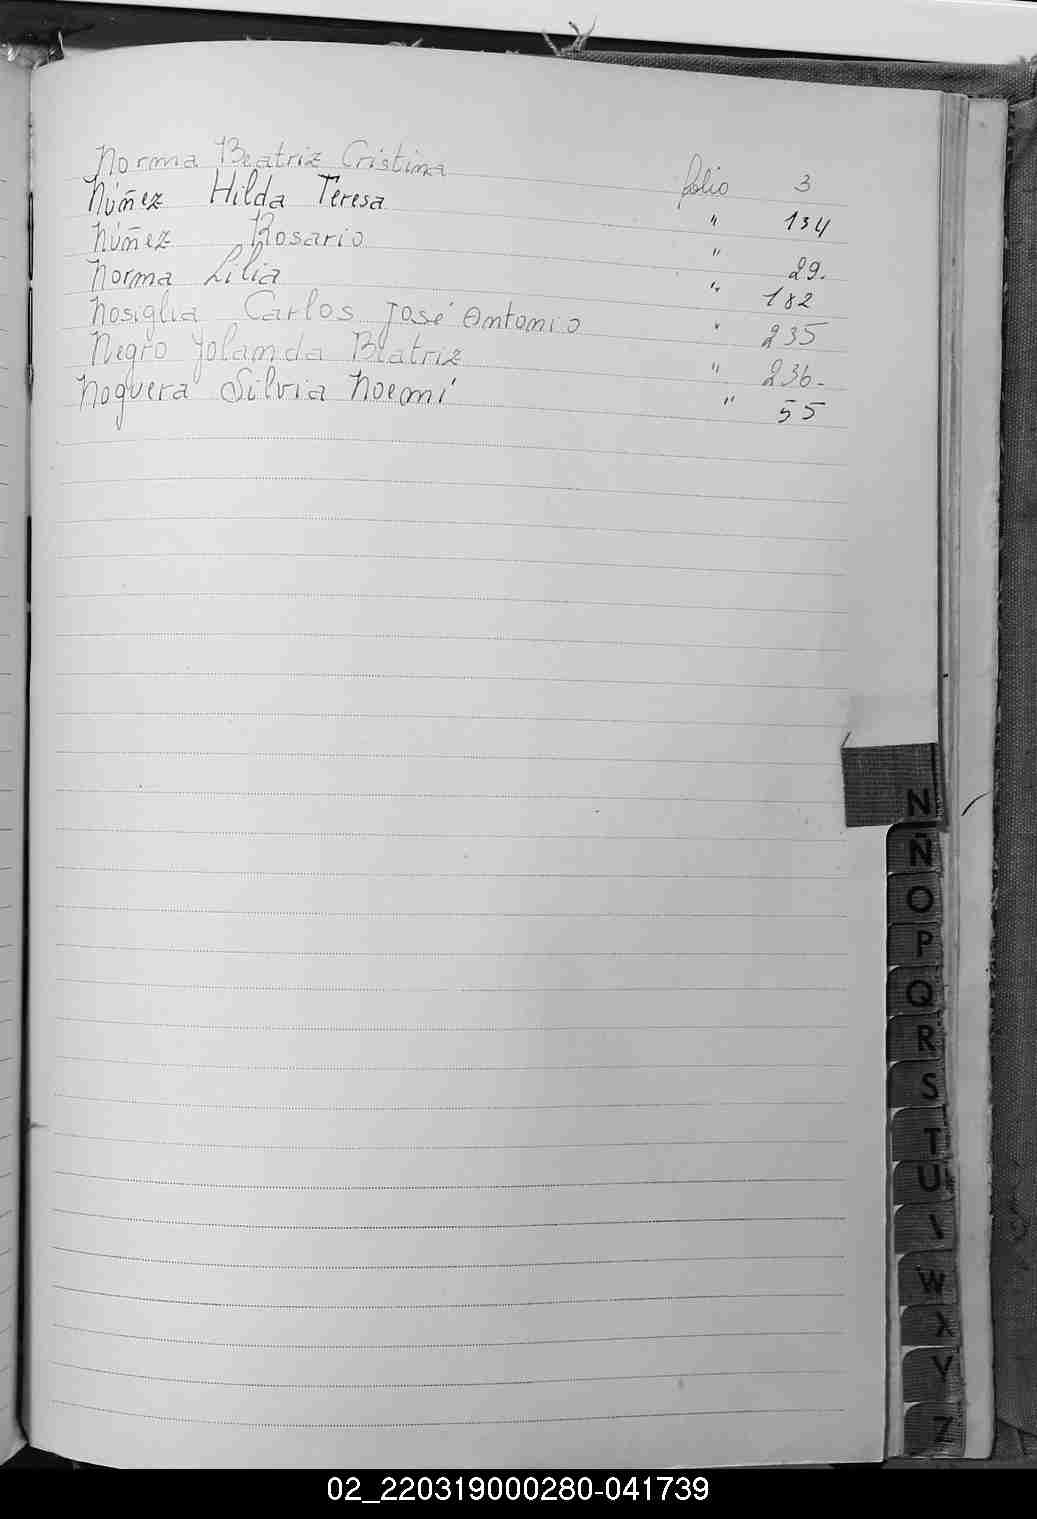 Norma Beatriz Cristina folio 3
Núñez Hilda Teresa " 134
Núñez Rosario " 29.
Norma Lilia " 182
Nosiglia Carlos José Antonio " 235
Negro Yolanda Beatriz " 236-
Noguera Silvia Noemí " 55
N
Ñ
O
P
Q
R
S
T
U
V
W
X
Y
Z
02_220319000280-041739